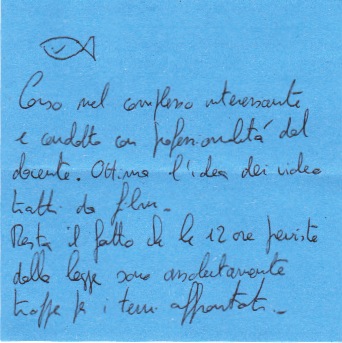 Corso nel complesso interessante
e condotto con professionalità dal
docente. Ottima l'idea dei video
tratti da film.
Resta il fatto che le 12 ore previste
dalla legge sono assolutamente
troppe x i temi affrontati.